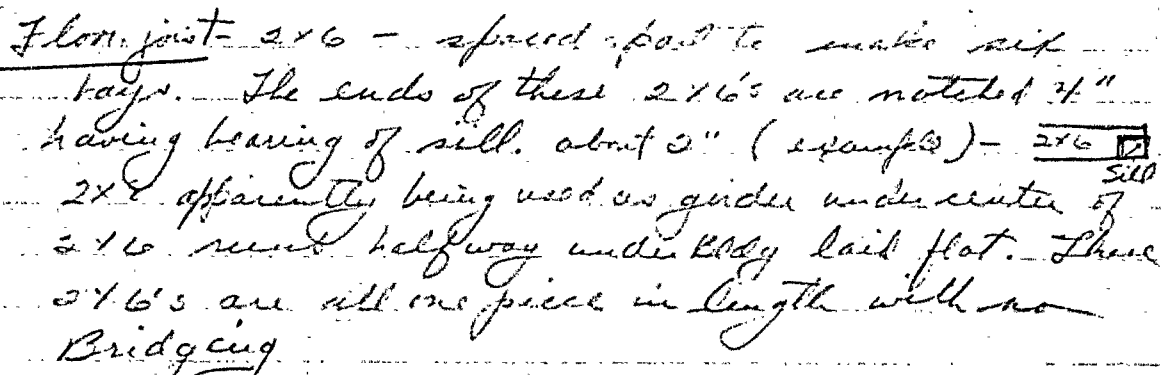 Floor joist - 2x6 - spaced apart to make six
bays. The ends of these 2x6's are notched 4"
having bearing of sill. about 2" (example) - 2x6
Sill
apparently being used as girder under center of
2x6 runs halfway under Bldg laid flat. These
2x6's are all one piece in length with no
Bridgeing